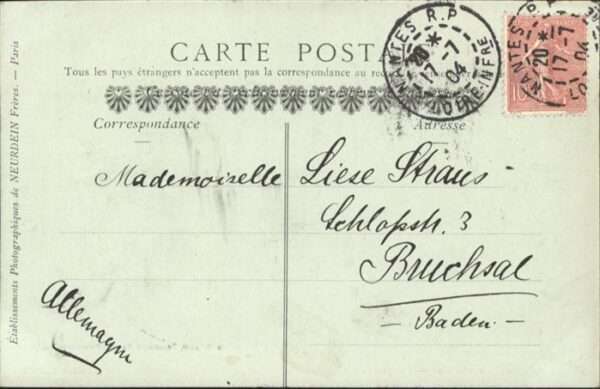 CARTE POSTA
Tous les pays étrangers n'acceptent pas la correspondance au
Correspondance
Adresse
Mademoiselle Liese Straus
Schloßstr. 3
Bruchsal
- Baden -
Allemagne
Établissements Photographiques de NEURDEIN Frères. — Paris
NANTES R.P.
20 *
17-7
04
LOIRE-INFRE
NANTES R.P.
20 *
17-7
04
LO